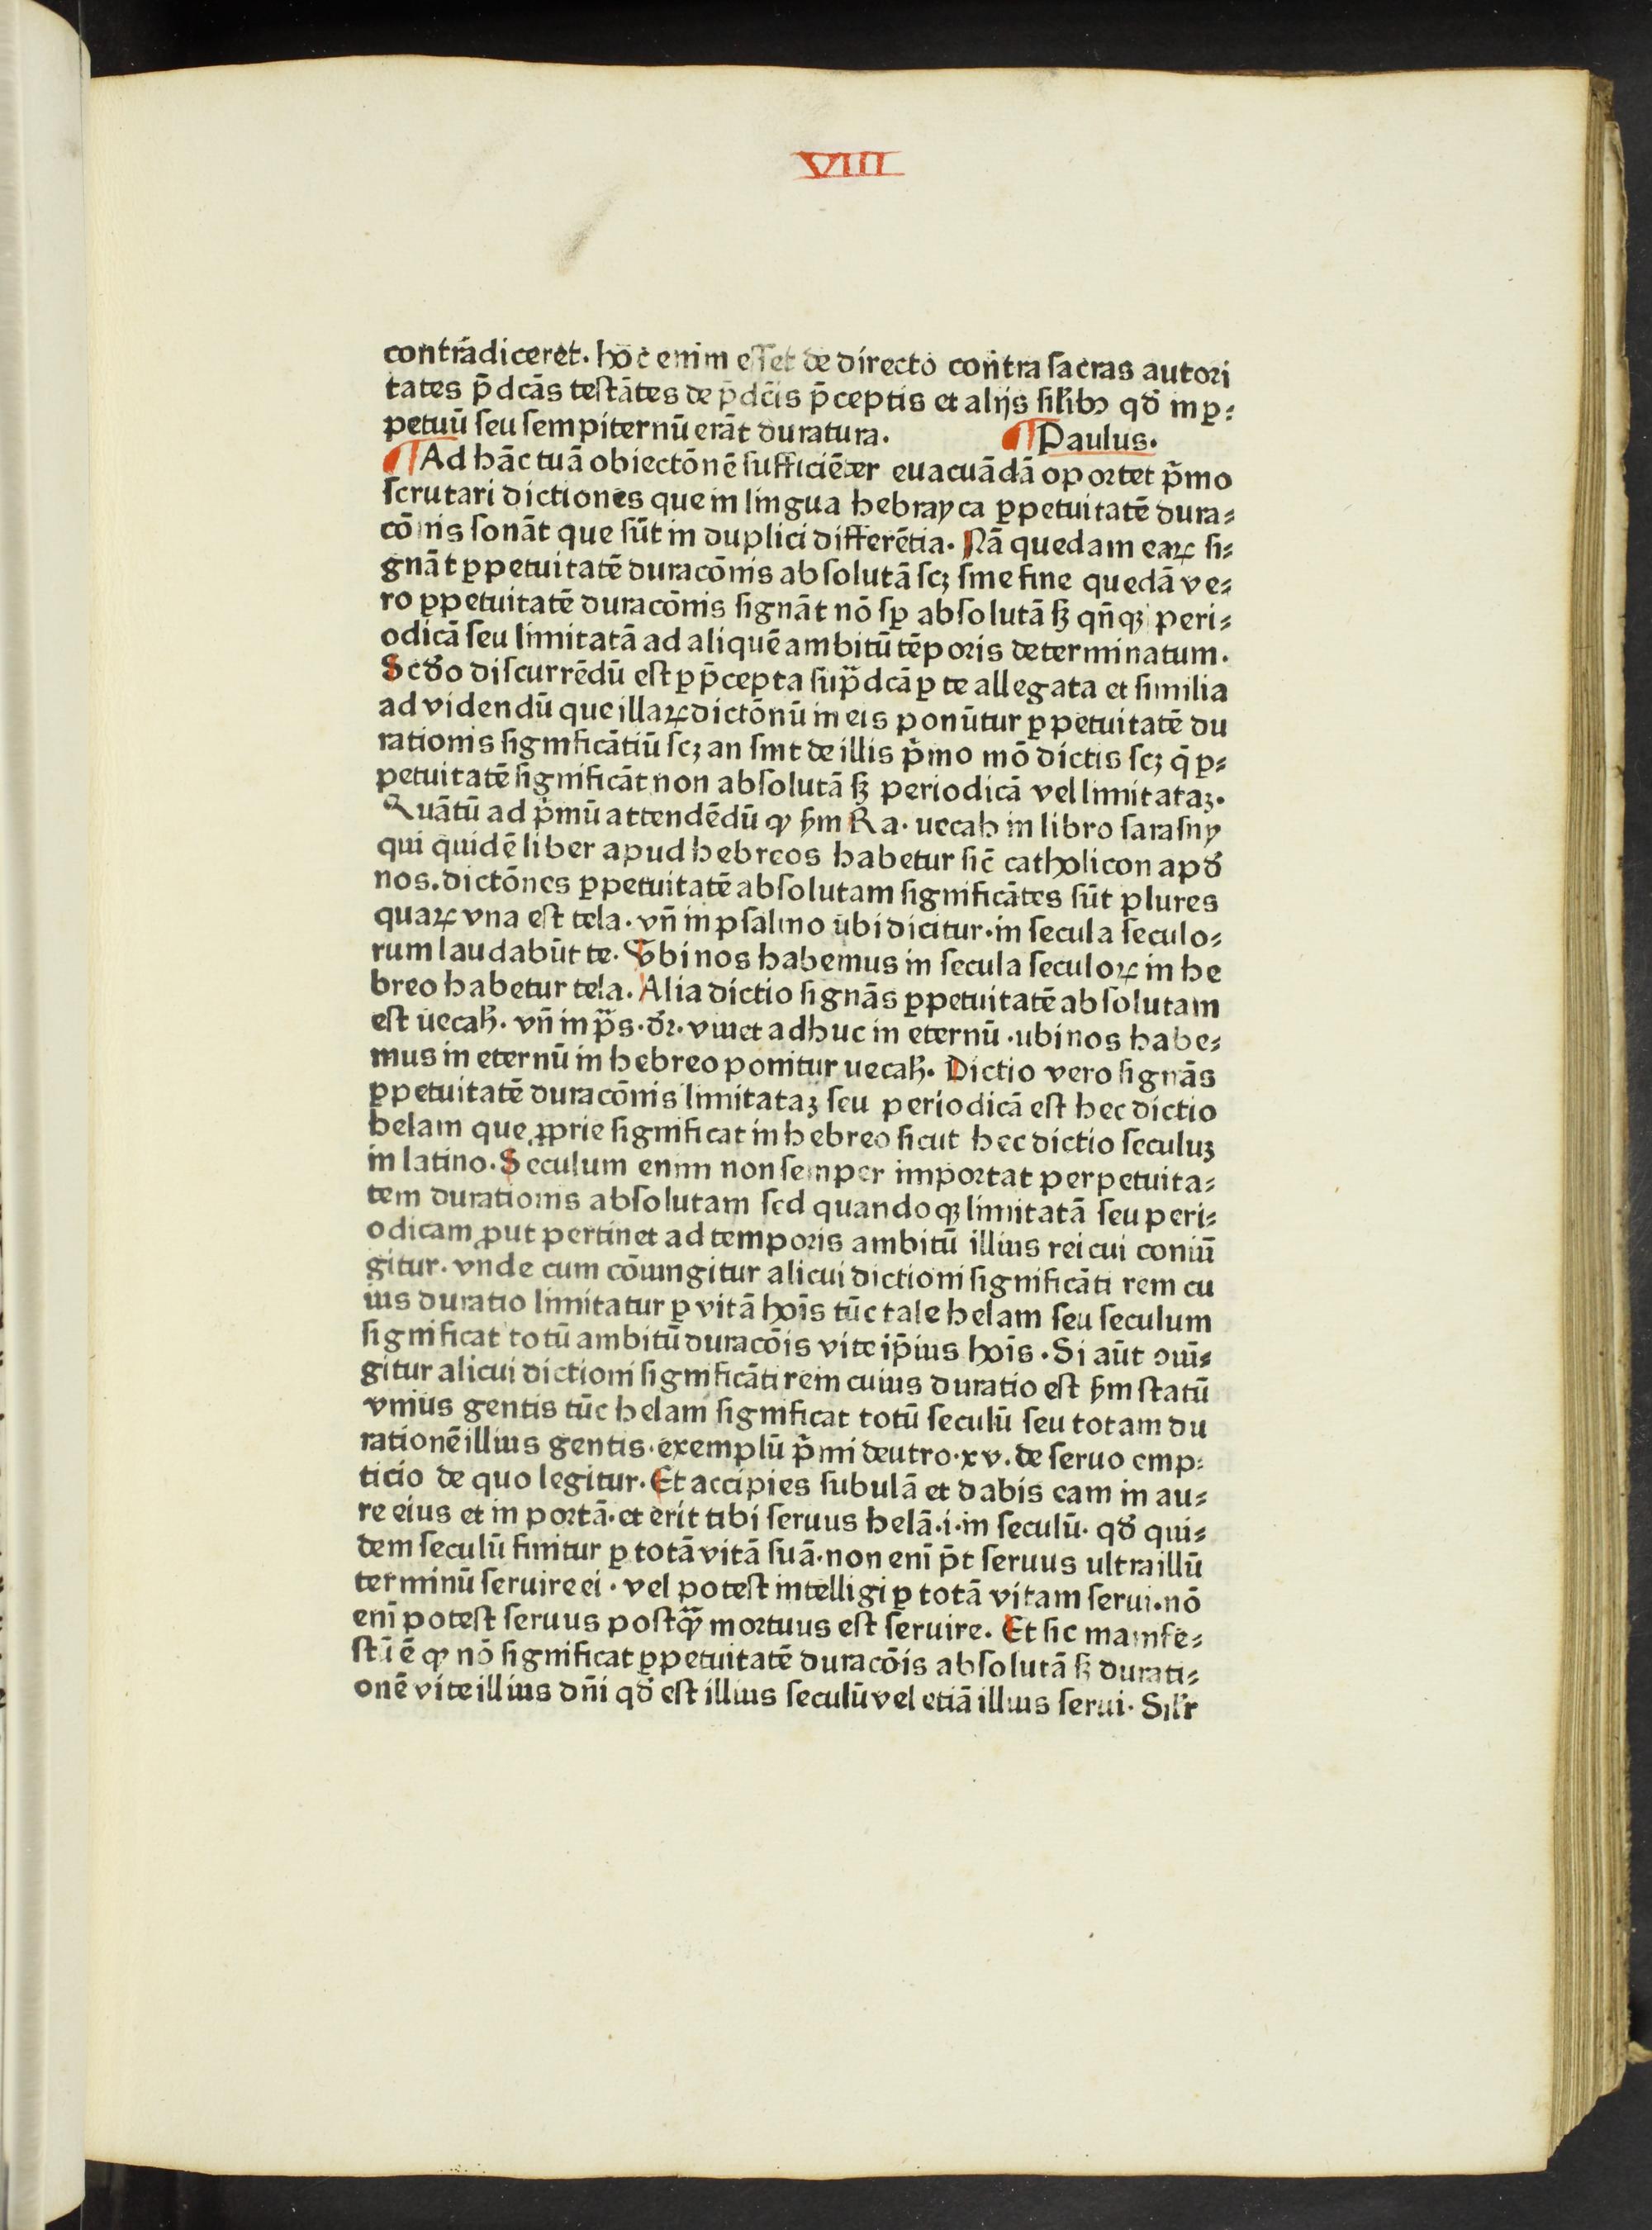 VIII
contrādiceret. hoc enim esset de directo contra sacras autori
tates p̄dcās testātes de p̄dcīs p̄ceptis et alijs silibꝫ qđ in ꝑ⸗
petuū seu sempiternū erāt duratura. ¶Paulus.
¶Ad hāc tuā obiectōnē sufficiēter euacuādā oportet p̄mo
scrutari dictiones que in lingua hebrayca ꝑpetuitatē dura⸗
cōnis sonāt que sūt in duplici differētia. Nā quedam eaꝝ si⸗
gnāt ꝑpetuitatē duracōnis absolutā scꝫ sine fine quedā ve⸗
ro ꝑpetuitatē duracōnis signāt nō sꝑ absolutā sꝫ qn̄qꝫ peri⸗
odicā seu limitatā ad aliquē ambitū tēporis determinatum.
Scđo discurrēdū est ꝑ p̄cepta sup̄dcā ꝑ te allegata et similia
ad videndū que illaꝝ dictōnū in eis ponūtur ꝑpetuitatē du
rationis significātiū scꝫ an sint de illis p̄mo mō dictis scꝫ q̄ ꝑ⸗
petuitatē significāt non absolutā sꝫ periodicā vel limitataꝫ.
Quātū ad p̄mū attendēdū ꝙ ẜm Ra. uecah in libro sarasny
qui quidē liber apud hebreos habetur sic̄ catholicon apđ
nos. dictōnes ꝑpetuitatē absolutam significātes sūt plures
quaꝝ vna est tela. vn̄ in psalmo ubi dicitur. in secula seculo⸗
rum laudabūt te. Vbi nos habemus in secula seculoꝝ in he
breo habetur tela. Alia dictio signās ꝑpetuitatē absolutam
est uecah̄. vn̄ in p̄s. dr̄. viuet adhuc in eternū. ubi nos habe⸗
mus in eternū in hebreo ponitur uecah̄. Dictio vero signās
ꝑpetuitatē duracōnis limitataꝫ seu periodicā est hec dictio
helam que ꝓprie significat in hebreo sicut hec dictio seculuꝫ
in latino. Seculum enim non semper importat perpetuita⸗
tem durationis absolutam sed quandoqꝫ limitatā seu peri⸗
odicam ꝓut pertinet ad temporis ambitū illius rei cui coniū
gitur. vnde cum cōiungitur alicui dictioni significāti rem cu
ius duratio limitatur ꝑ vitā hoīs tūc tale helam seu seculum
significat totū ambitū duracōis vite ip̄ius hoīs. Si aūt ↄiūi⸗
gitur alicui dictioni significāti rem cuius duratio est ẜm statū
vnius gentis tūc helam significat totū seculū seu totam du
rationē illius gentis. exemplū p̄mi deutro. xv. de seruo emp⸗
ticio de quo legitur. Et accipies subulā et dabis eam in au⸗
re eius et in portā. et erit tibi seruus helā. i. in seculū. qđ qui⸗
dem seculū finitur ꝑ totā vitā suā. non enī p̄t seruus ultra illū
terminū seruire ei. vel potest intelligi ꝑ totā vitam serui. nō
enī potest seruus postꝙ̄ mortuus est seruire. Et sic manife⸗
stū ē ꝙ nō significat ꝑpetuitatē duracōis absolutā sꝫ durati⸗
onē vite illius dn̄i qđ est illius seculū vel etiā illius serui. Silr̄